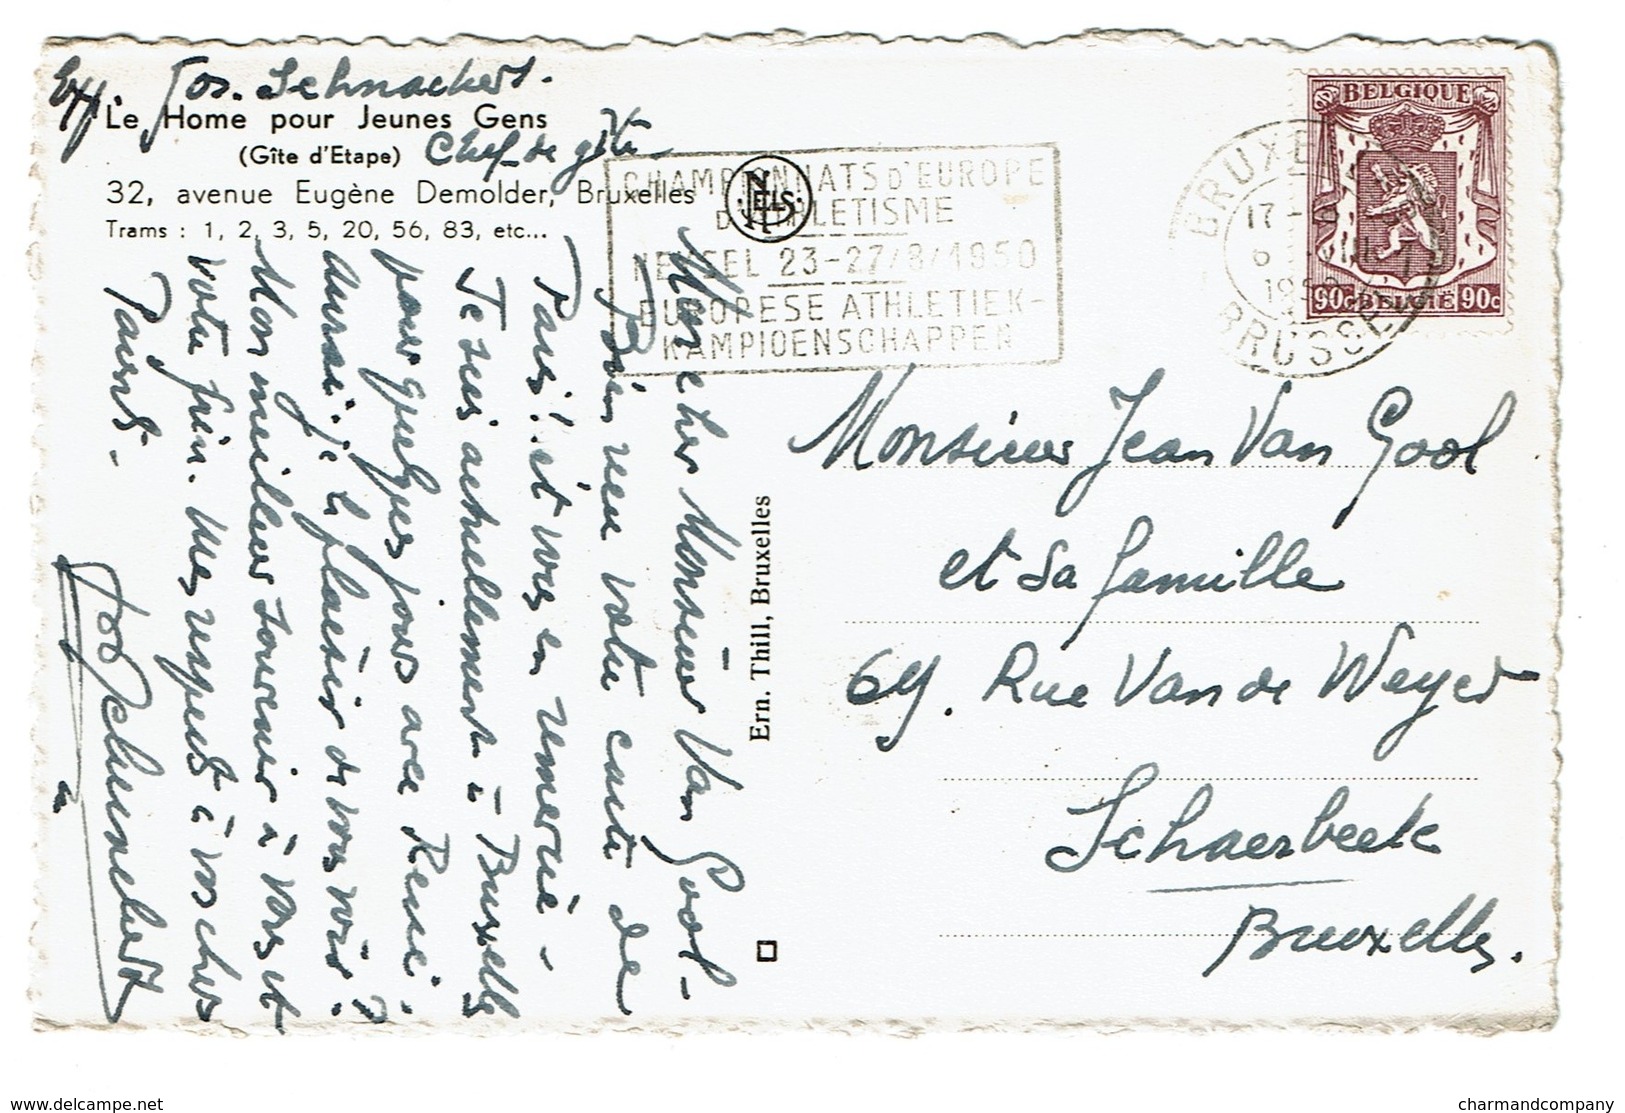 Exp. Jos. Schnackers.
Le Home pour Jeunes Gens
(Gîte d'Etape) Chef de gîte
32, avenue Eugène Demolder, Bruxelles
Trams : 1, 2, 3, 5, 20, 56, 83, etc...
NELS
CHAMPIONNATS D'EUROPE
D'ATHLETISME
HEYSEL 23-27/8/1950
EUROPESE ATHLETIEK-
KAMPIOENSCHAPPEN
BRUXELLES
17-
6
1950
BRUSSEL
BELGIQUE
90c BELGIË 90c
Mon cher Monsieur Van Gool-
Bien reçu votre carte de
Paris! et vous en remercie -
Je suis actuellement à Bruxelles
pour quelques jours avec
aurai-je le plaisir de vous voir?
Mon meilleur souvenir à vous et
votre Mes respects à vos chers
Parents -
Jos Schnackers
Ern. Thill, Bruxelles
Monsieur Jean Van Gool
et sa famille
64. Rue Van de Weyer
Schaerbeek
Bruxelles.
delcampe.net
charmandcompany